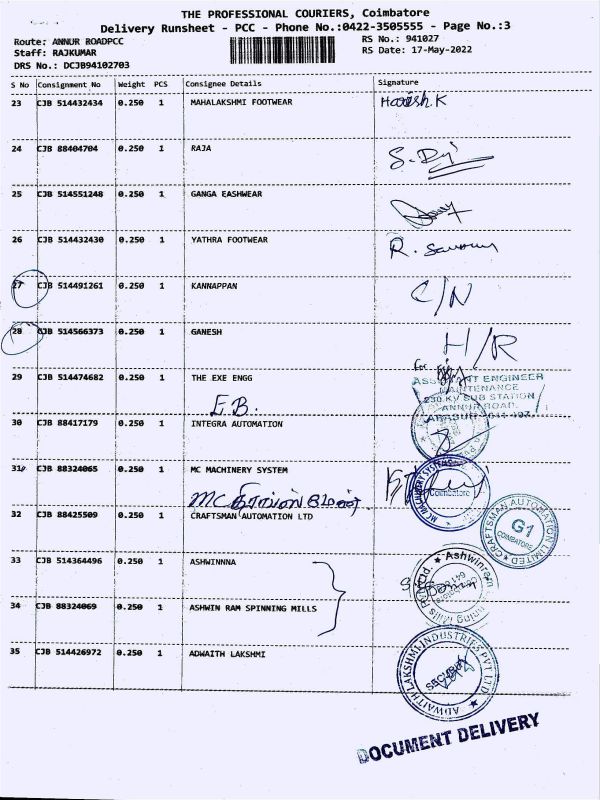 THE PROFESSIONAL COURIERS, Coimbatore
Delivery Runsheet - PCC - Phone No.:0422-3505555 - Page No.:3
Route: ANNUR ROADPCC RS No.: 941027
Staff: RAJKUMAR RS Date: 17-May-2022
DRS No.: DCJB94102703
S No Consignment No Weight PCS Consignee Details Signature
23 CJB 514432434 0.250 1 MAHALAKSHMI FOOTWEAR Harish.K
24 CJB 88404704 0.250 1 RAJA
25 CJB 514551248 0.250 1 GANGA EASHWEAR
26 CJB 514432430 0.250 1 YATHRA FOOTWEAR R.
27 CJB 514491261 0.250 1 KANNAPPAN C/N
28 CJB 514566373 0.250 1 GANESH H/R
29 CJB 514474682 0.250 1 THE EXE ENGG
For
ASSISTANT ENGINEER
MAINTENANCE
230 KV SUB STATION
ANNUR ROAD,
E.B.
30 CJB 88417179 0.250 1 INTEGRA AUTOMATION
31 CJB 88324065 0.250 1 MC MACHINERY SYSTEM
MC MACHINERY SYSTEMS
Coimbatore
MC
32 CJB 88425509 0.250 1 CRAFTSMAN AUTOMATION LTD
CRAFTSMAN AUTOMATION LIMITED
G1
COIMBATORE
33 CJB 514364496 0.250 1 ASHWINNNA
Ashwinram
34 CJB 88324069 0.250 1 ASHWIN RAM SPINNING MILLS
35 CJB 514426972 0.250 1 ADWAITH LAKSHMI
ADWAITH LAKSHMI INDUSTRIES PVT LTD
SECURITY
DOCUMENT DELIVERY